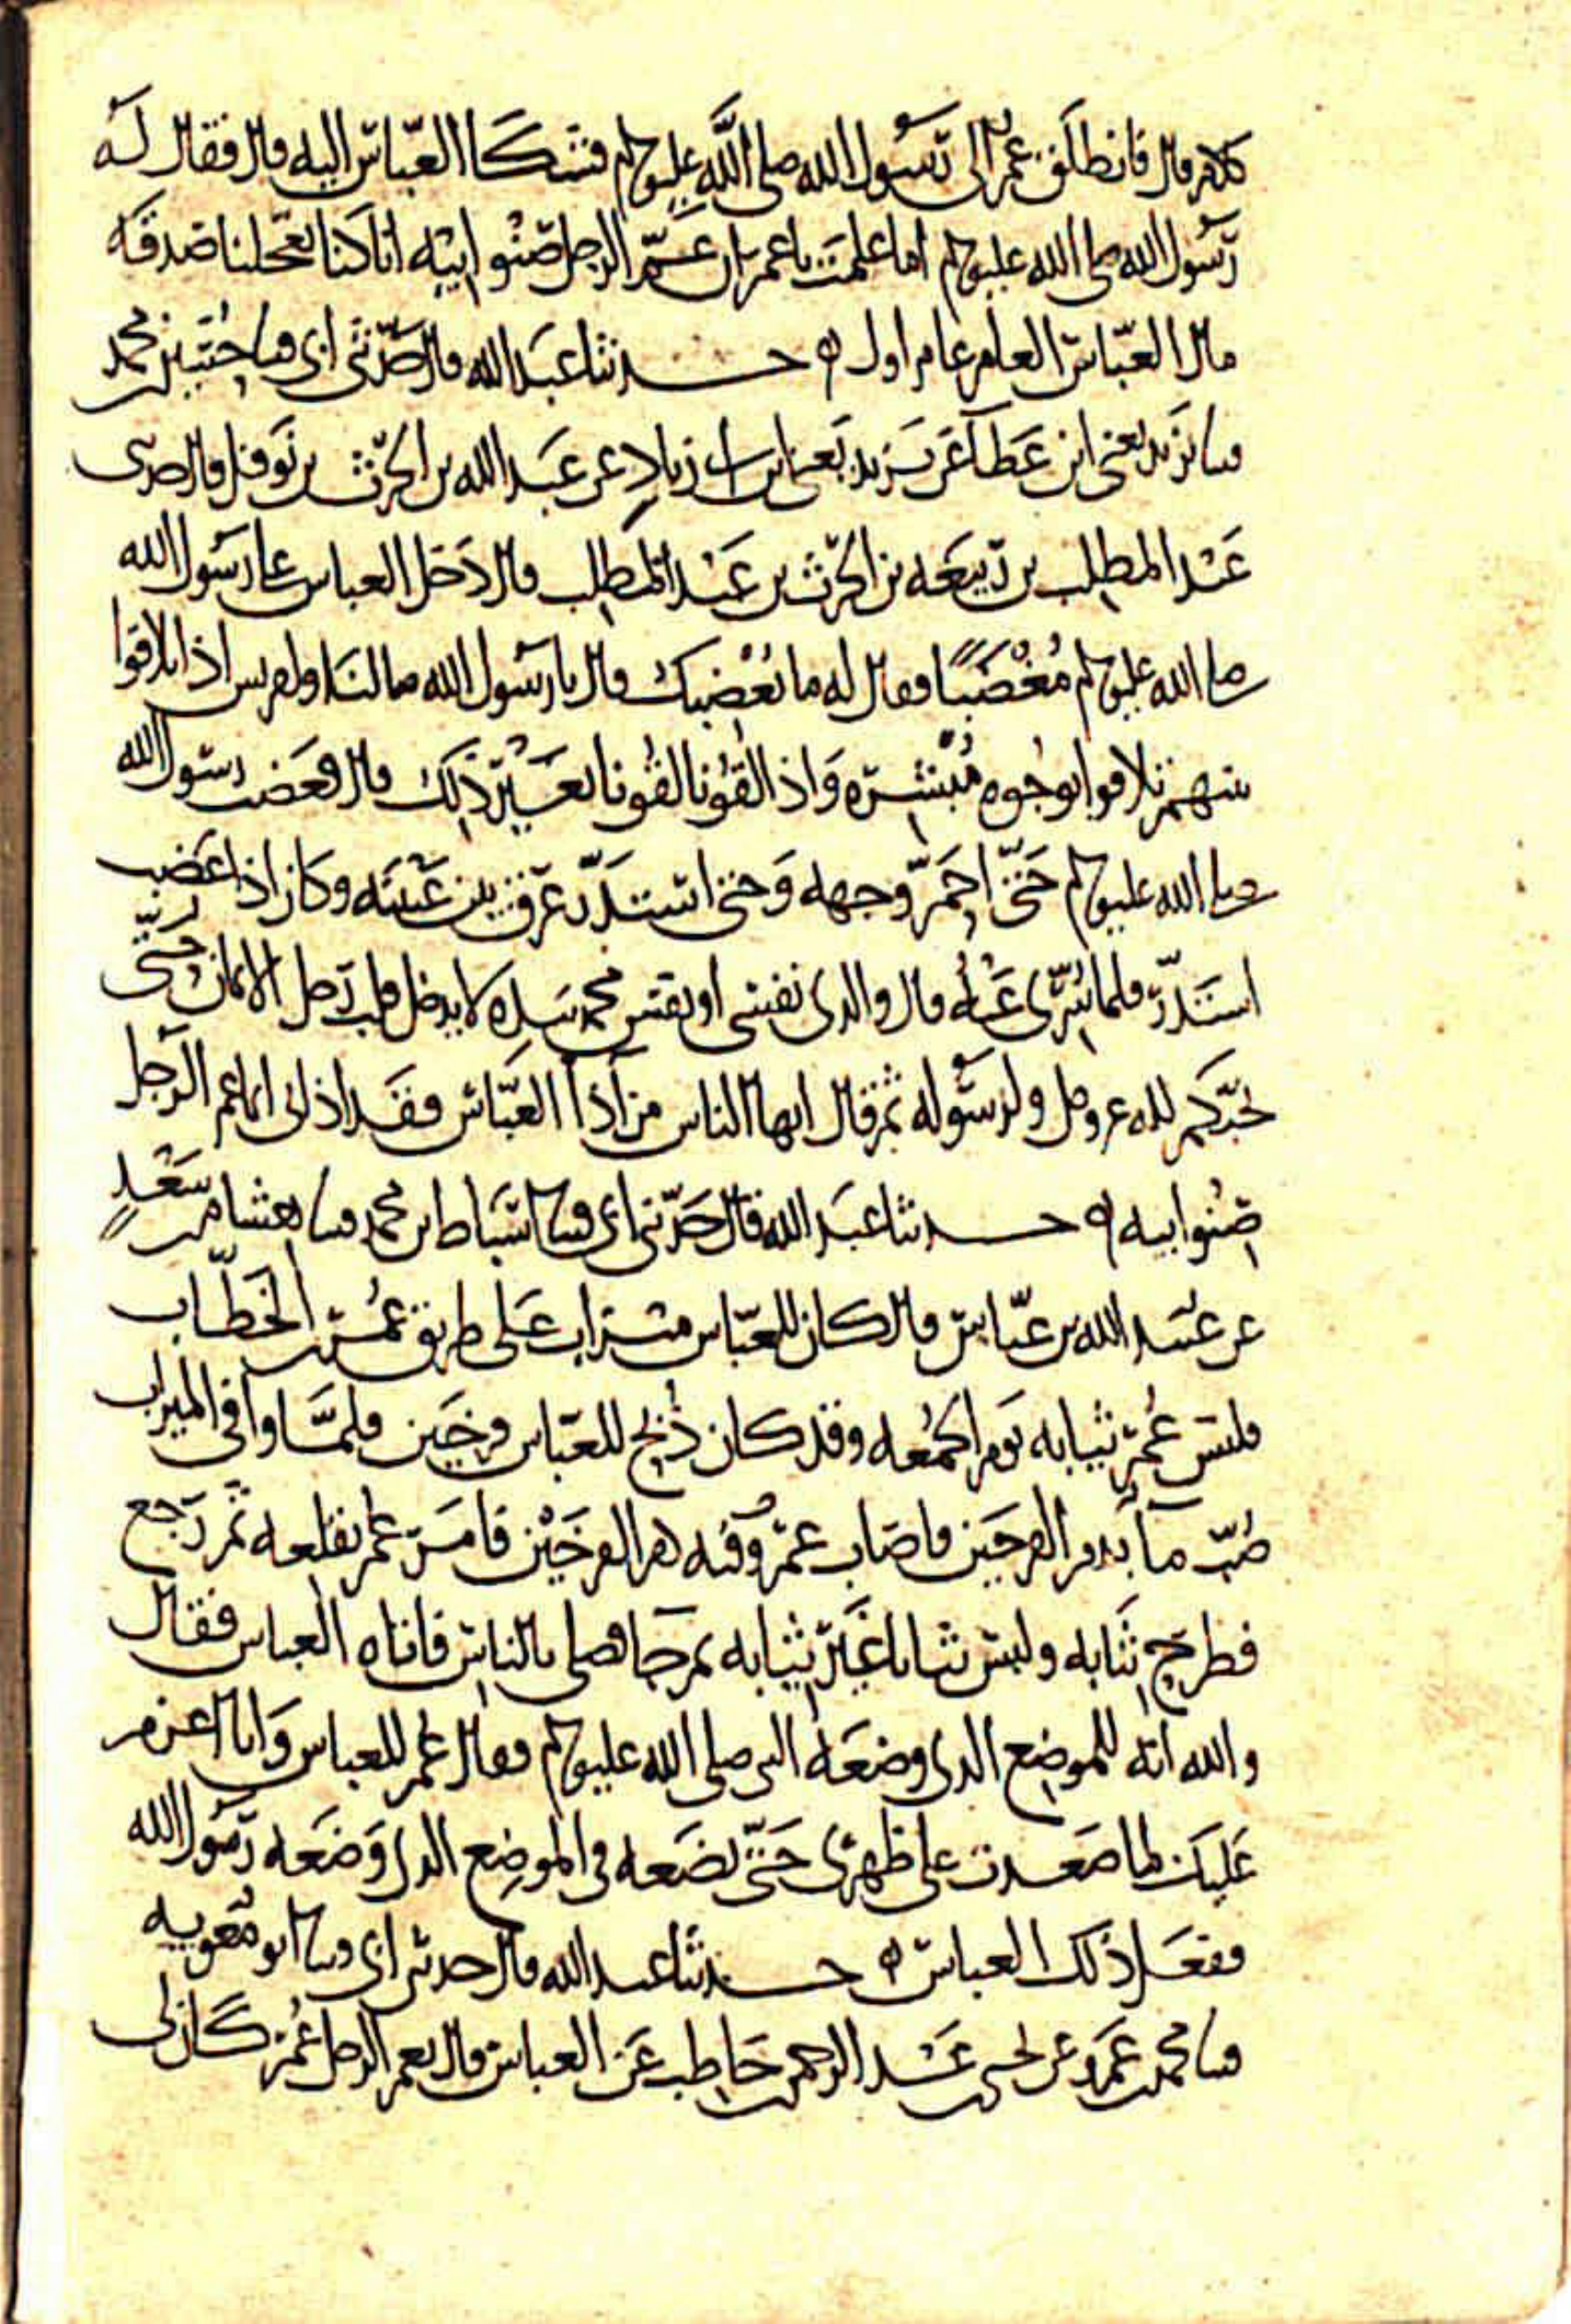 كلام قال فانطلق عمر الى رسول الله صلى الله عليه وسلم فشكا العباس اليه قال فقال له
رسول الله صلى الله عليه وسلم اما علمت يا عمر ان عم الرجل صنو ابيه انا كنا تعجلنا صدقة
مال العباس العام عام اول ه حدثنا عبد الله قال حدثني ابي قثنا حسين بن محمد
قثنا يزيد يعني ابن عطا عن يزيد يعني ابن ابي زياد عن عبد الله بن الحرث بن نوفل قال حدثني
عبد المطلب بن ربيعه بن الحرث بن عبد المطلب قال دخل العباس على رسول الله
صلى الله عليه وسلم مغضبا فقال له ما يغضبك قال يا رسول الله ما لنا ولقريش اذا تلاقوا
بينهم تلاقوا بوجوه مبشره واذا لقونا لقونا بغير ذلك قال فغضب رسول الله
صلى الله عليه وسلم حتى احمر وجهه وحتى استدر عرق بين عينيه وكان اذا غضب
استدر فلما سري عنه قال والذي نفسي او نفس محمد بيده لا يدخل قلب رجل الايمان حتى
يحبكم لله عز وجل ولرسوله ثم قال ايها الناس من آذا العباس فقد اذاني انما عم الرجل
صنو ابيه ه حدثنا عبد الله قال حدثني ابي قثنا اسباط بن محمد قثنا هشام بن سعد
عن عبيد الله بن عباس قال كان للعباس ميزاب على طريق عمر بن الخطاب
فلبس عمر ثيابه يوم الجمعه وقد كان ذبح للعباس فرخين فلما وافى الميزاب
صب ماء بدم الفرخين فاصاب عمر وفيه دم الفرخين فامر عمر بقلعه ثم رجع
فطرح ثيابه ولبس ثيابا غير ثيابه ثم جا فصلى بالناس فاتاه العباس فقال
والله انه للموضع الذي وضعه النبي صلى الله عليه وسلم فقال عمر للعباس وانا اعزم
عليك لما صعدت على ظهري حتى تضعه في الموضع الذي وضعه رسول الله
ففعل ذلك العباس ه حدثنا عبد الله قال حدثني ابي قثنا ابو معويه
قثنا محمد بن عمرو عن يحيى بن عبد الرحمن بن حاطب عن العباس قال نعم الرجل عمر كان لي